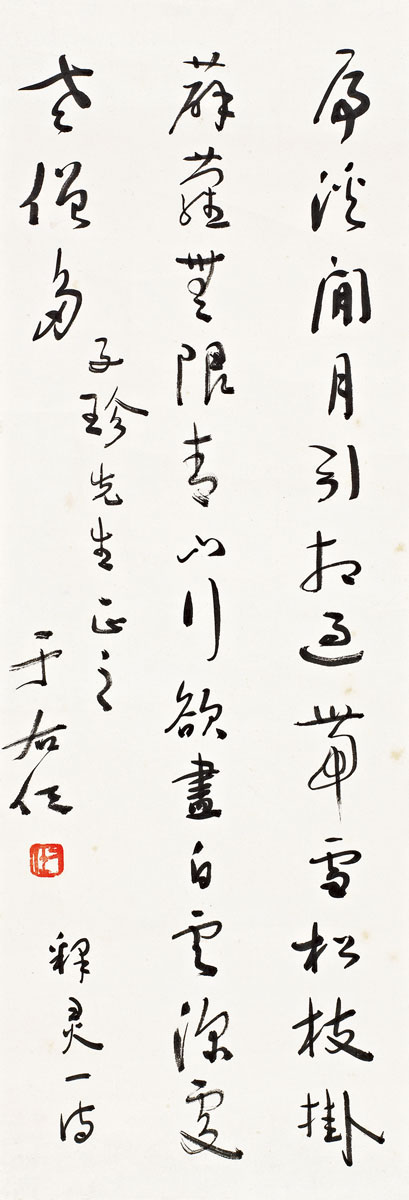 虎溪閒月引相過帶雪松枝掛
薜蘿無限青山行欲盡白雲深處
老僧多
子珍先生正之
于右任
釋灵一詩